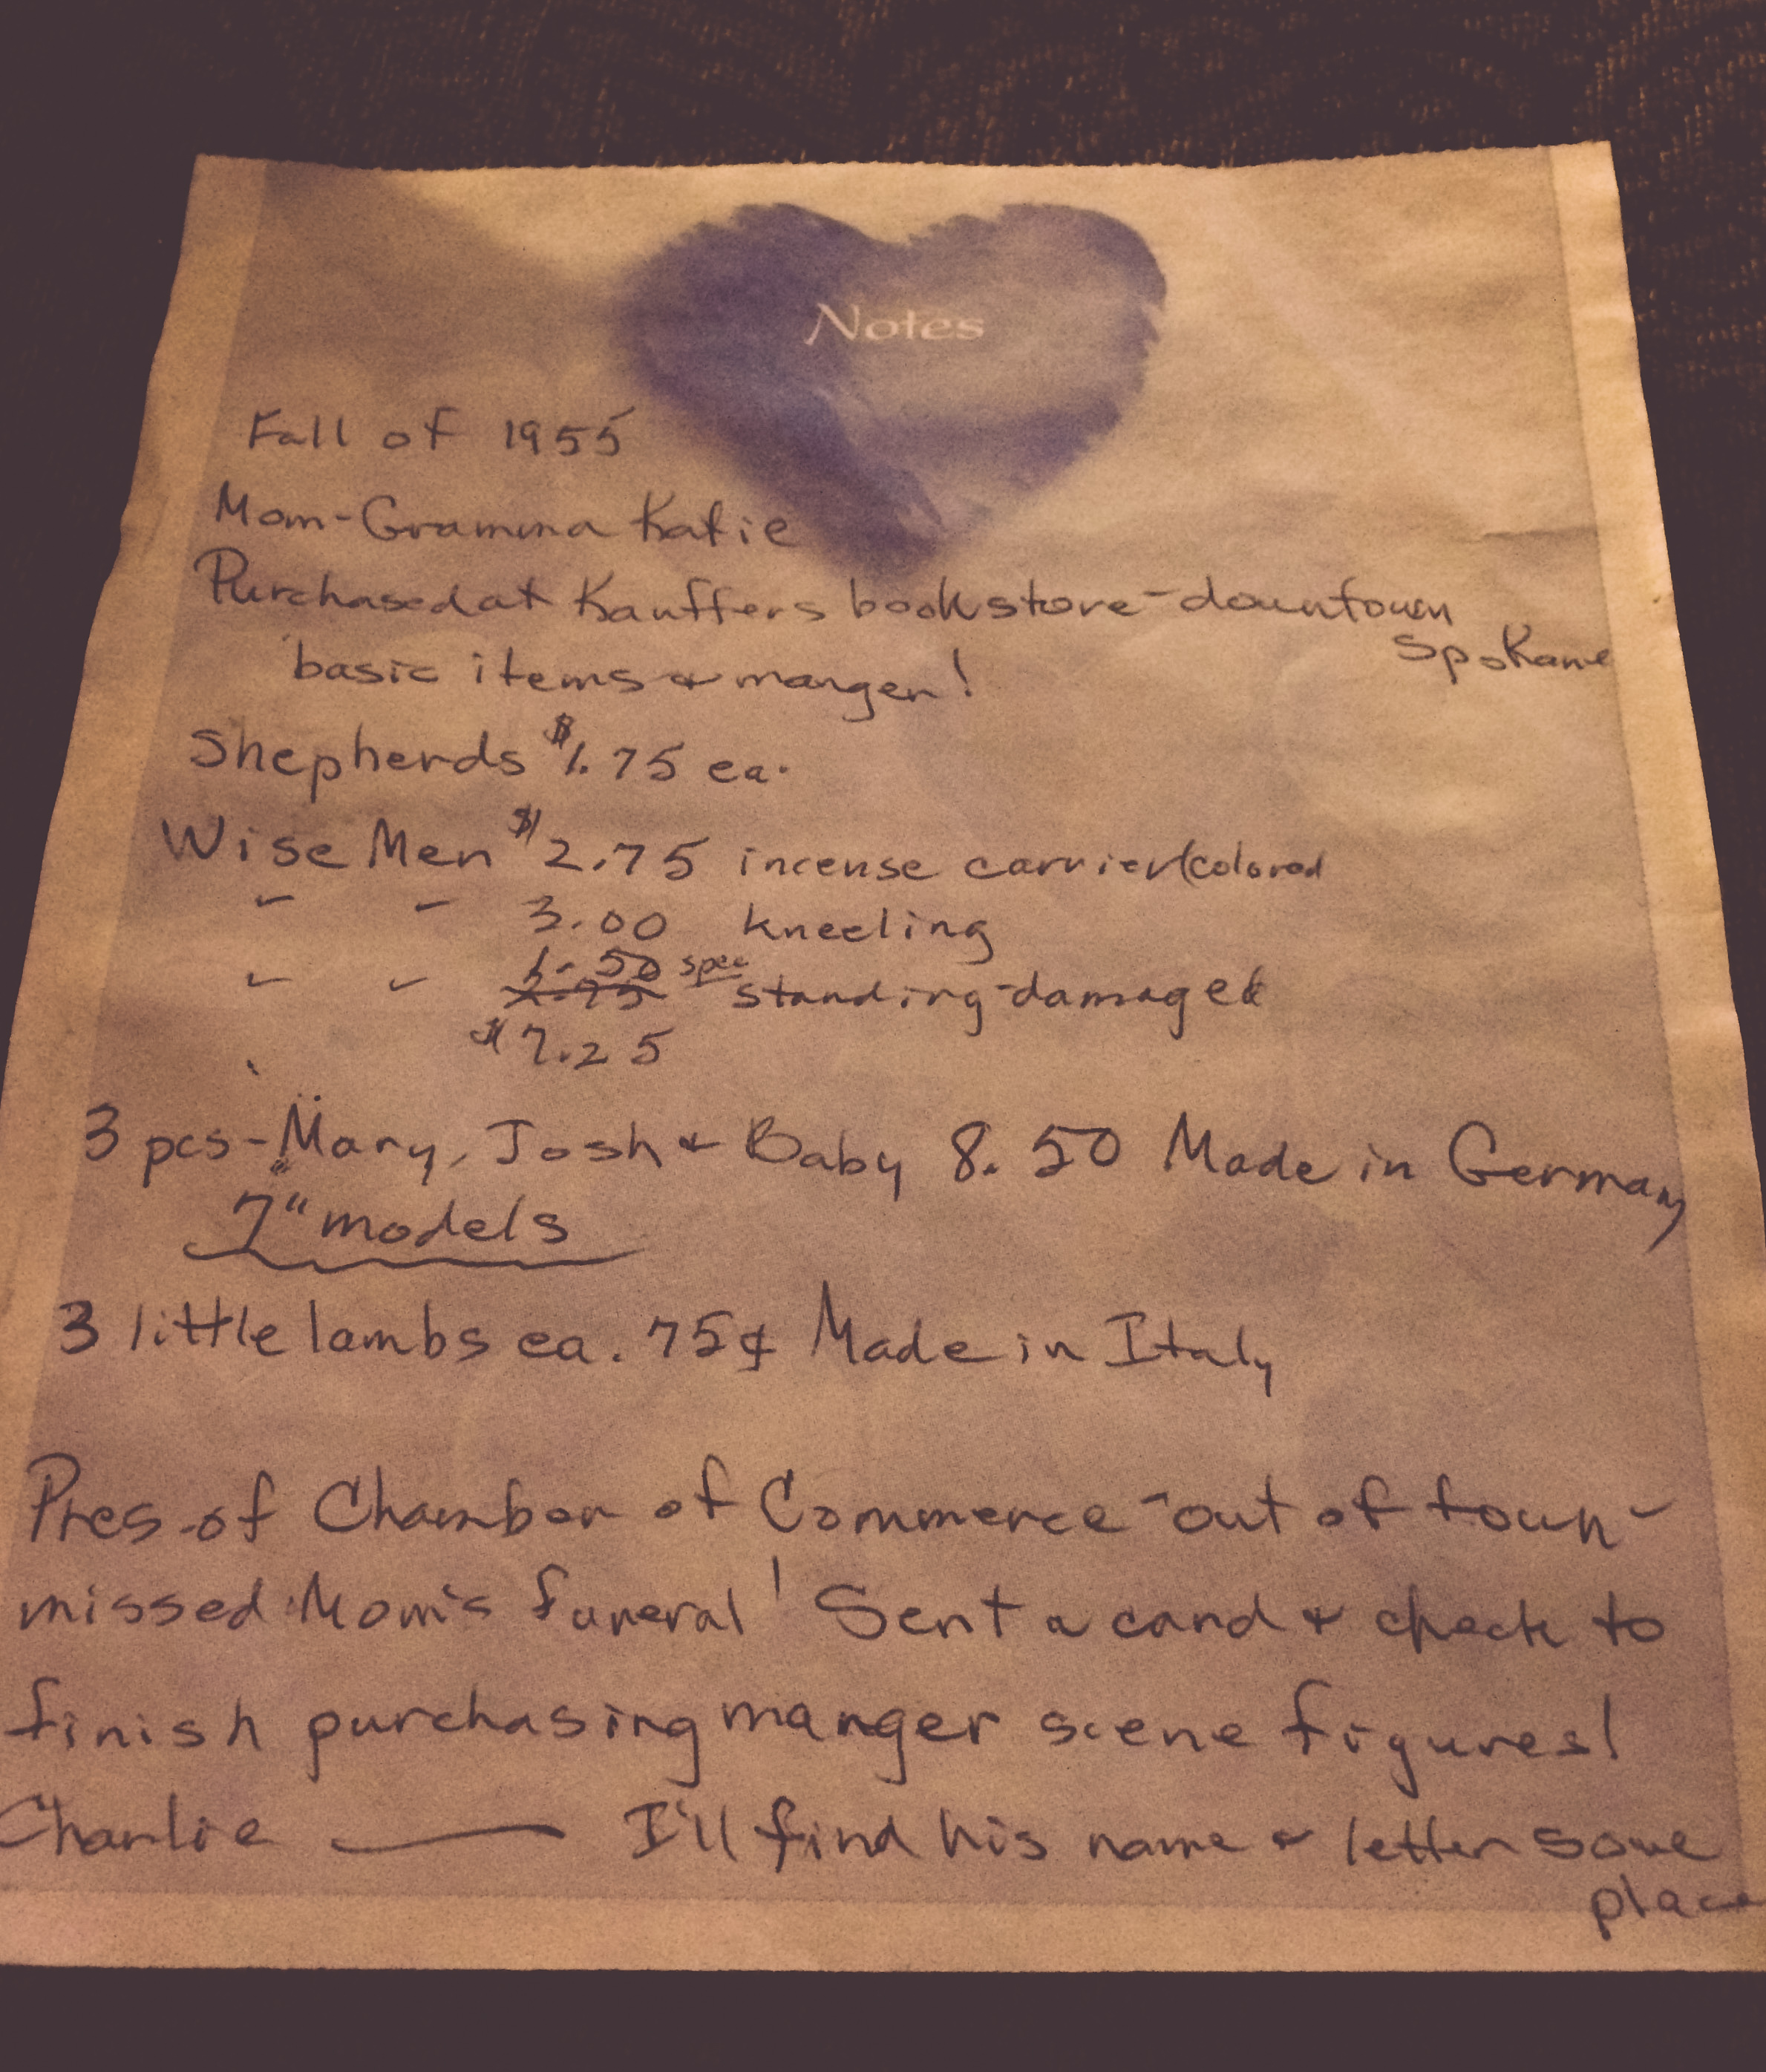 Notes
Fall of 1955
Mom-Gramma Katie
Purchased at Kauffers bookstore - downtown
Spokane
basic items & manger!
Shepherds $1.75 ea.
Wise Men $2.75 incense carrier (colored
" " 3.00 kneeling
1.50 spec
" " 2.75 standing-damaged
$7.25
3 pcs - Mary, Josh & Baby 8.50 Made in Germany
7" models
3 little lambs ea. 75¢ Made in Italy
Pres. of Chamber of Commerce - out of town -
missed Mom's funeral! Sent a card & check to
finish purchasing manger scene figures!
Charlie — I'll find his name & letter some
place